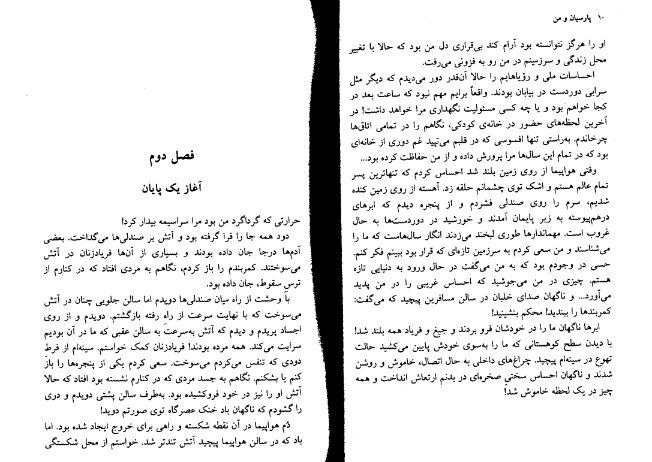 ۱۰ پارسیان و من
او را هرگز نتوانسته بود آرام کند بی‌قراری دل من بود که حالا با تغییر
محل زندگی و سرزمینم در من رو به فزونی می‌رفت.
احساسات ملی و رؤیاهایم را حالا آن‌قدر دور می‌دیدم که دیگر مثل
سرابی دوردست در بیابان بودند. واقعاً برایم مهم نبود که ساعت بعد در
کجا خواهم بود و یا چه کسی مسئولیت نگهداری مرا خواهد داشت! در
آخرین لحظه‌های حضور در خانه‌ی کودکی، نگاهم را در تمامی اتاق‌ها
چرخاندم. به‌راستی تنها افسوسی که در قلبم می‌تپید غم دوری از خانه‌ای
بود که در تمام این سال‌ها مرا پرورش داده و از من حفاظت کرده بود...
وقتی هواپیما از روی زمین بلند شد احساس کردم که تنهاترین پسر
تمام عالم هستم و اشک توی چشمانم حلقه زد. آهسته از روی زمین کنده
شدیم، سرم را روی صندلی فشردم و از پنجره دیدم که ابرهای
درهم‌پیوسته به زیر پایمان آمدند و خورشید در دوردست‌ها به حال
غروب است. مهماندارها طوری لبخند می‌زدند انگار سال‌هاست که ما را
می‌شناسند و من سعی کردم به سرزمین تازه‌ای که قرار بود ببینم فکر کنم.
حسی در وجودم بود که به من می‌گفت در حال ورود به دنیایی تازه
هستم. چیزی در من می‌جوشید که احساس غریبی را در من پدید
می‌آورد... و ناگهان صدای خلبان در سالن مسافرین پیچید که می‌گفت:
کمربندها را ببندید! محکم بنشینید!
ابرها ناگهان ما را در خودشان فرو بردند و جیغ و فریاد همه بلند شد!
با دیدن سطح کوهستانی که ما را به‌سوی خودش پایین می‌کشید حالت
تهوع در سینه‌ام پیچید. چراغ‌های داخلی به حال اتصال، خاموش و روشن
شدند و ناگهان احساس سختیِ صخره‌ای در بدنم ارتعاش انداخت و همه
چیز در یک لحظه خاموش شد!
فصل دوم
آغاز یک پایان
حرارتی که گرداگرد من بود مرا سراسیمه بیدار کرد!
دود همه جا را فرا گرفته بود و آتش بر صندلی‌ها می‌گداخت. بعضی
آدم‌ها درجا جان داده بودند و بسیاری از آن‌ها فریادزنان در آتش
می‌سوختند. کمربندم را باز کردم، نگاهم به مردی افتاد که در کنارم از
ترسِ سقوط، جان داده بود.
با وحشت از راه میان صندلی‌ها دویدم اما سالن جلویی چنان در آتش
می‌سوخت که با نهایت سرعت از راه رفته بازگشتم. دویدم و از روی
اجساد پریدم و دیدم که آتش به‌سرعت به سالن عقبی که ما در آن بودیم
سرایت می‌کند. همه مرده بودند! فریادزنان کمک خواستم. سینه‌ام از فرط
دودی که تنفس می‌کردم می‌سوخت. سعی کردم یکی از پنجره‌ها را باز
کنم یا بشکنم. نگاهم به جسد مردی که در کنارم نشسته بود افتاد که حالا
آتش او را نیز در خود فروکشیده بود. به‌طرف سالن پشتی دویدم و دری
را گشودم که ناگهان باد خنک عصرگاه توی صورتم دوید!
دُم هواپیما در آن نقطه شکسته و راهی برای خروج ایجاد شده بود. اما
باد که در سالن هواپیما پیچید آتش تندتر شد. خواستم از محل شکستگی